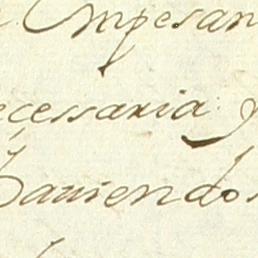 Empesan
ecessaria y
hauiendos